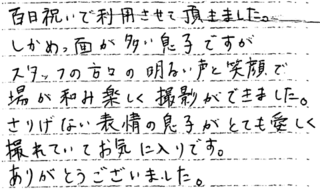 百日祝いで利用させて頂きました。
しかめっ面が多い息子ですが
スタッフの方々の明るい声と笑顔で
場が和み楽しく撮影ができました。
さりげない表情の息子がとても愛しく
撮れていてお気に入りです。
ありがとうございました。